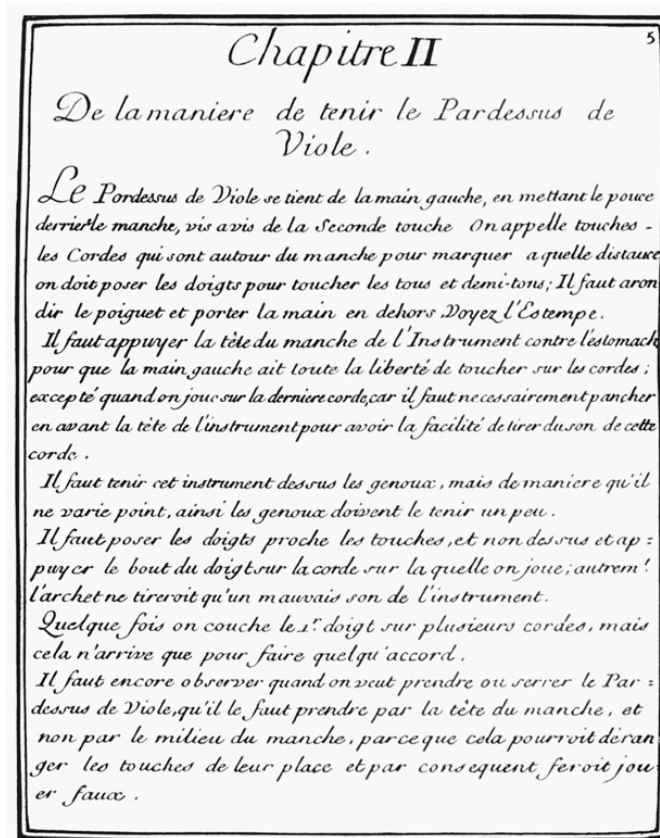 5
Chapitre II
De la maniere de tenir le Pardessus de
Viole.
Le Pordessus de Viole se tient de la main gauche, en mettant le pouce
derrier le manche, vis avis de la Seconde touche On appelle touches -
les Cordes qui sont autour du manche pour marquer a quelle distance
on doit poser les doigts pour toucher les tous et demi-tons; Il faut aron
dir le poiguet et porter la main en dehors Voyez l'Estempe.
Il faut appuyer la tête du manche de l'Instrument contre l'estomach
pour que la main gauche ait toute la liberté de toucher sur les cordes;
excepté quand on joue sur la derniere corde, car il faut necessairement pancher
en avant la tête de l'instrument pour avoir la facilité de tirer du son de cette
corde.
Il faut tenir cet instrument dessus les genoux, mais de maniere qu'il
ne varie point, ainsi les genoux doivent le tenir un peu.
Il faut poser les doigts proche les touches, et non dessus et ap=
puyer le bout du doigt sur la corde sur la quelle on joue; autremt.
l'archet ne tireroit qu'un mauvais son de l'instrument.
Quelque fois on couche le 1r. doigt sur plusieurs cordes, mais
cela n'arrive que pour faire quelqu'accord.
Il faut encore observer quand on veut prendre ou serrer le Par=
dessus de Viole, qu'il le faut prendre par la tête du manche, et
non par le milieu du manche, parce que cela pourroit déran
ger les touches de leur place et par consequent feroit jou
er faux.